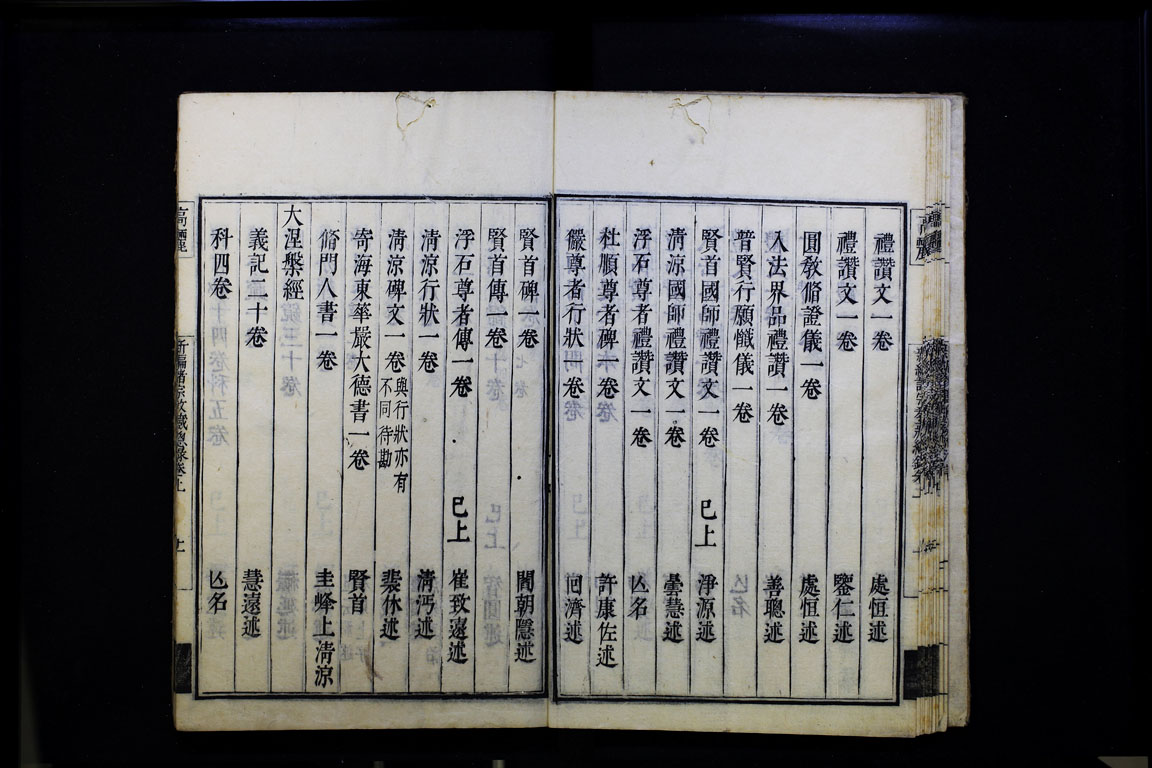 禮讚文一卷 處恒述
禮讚文一卷 鑒仁述
圓敎脩證儀一卷 處恒述
入法界品禮讚一卷 善聰述
普賢行願懺儀一卷
賢首國師禮讚文一卷 巳上 淨源述
淸涼國師禮讚文一卷 曇慧述
浮石尊者禮讚文一卷 亾名
杜順尊者碑一卷 許康佐述
儼尊者行狀一卷
賢首碑一卷 閻朝隱述
賢首傳一卷
浮石尊者傳一卷 巳上 崔致遠述
淸涼行狀一卷 淸沔述
淸涼碑文一卷 與行狀亦有不同待勘 裴休述
寄海東華嚴大德書一卷 賢首
脩門人書一卷 圭峰上淸涼
大涅槃經
義記二十卷 慧遠述
科四卷 亾名
新編諸宗敎藏總錄卷上